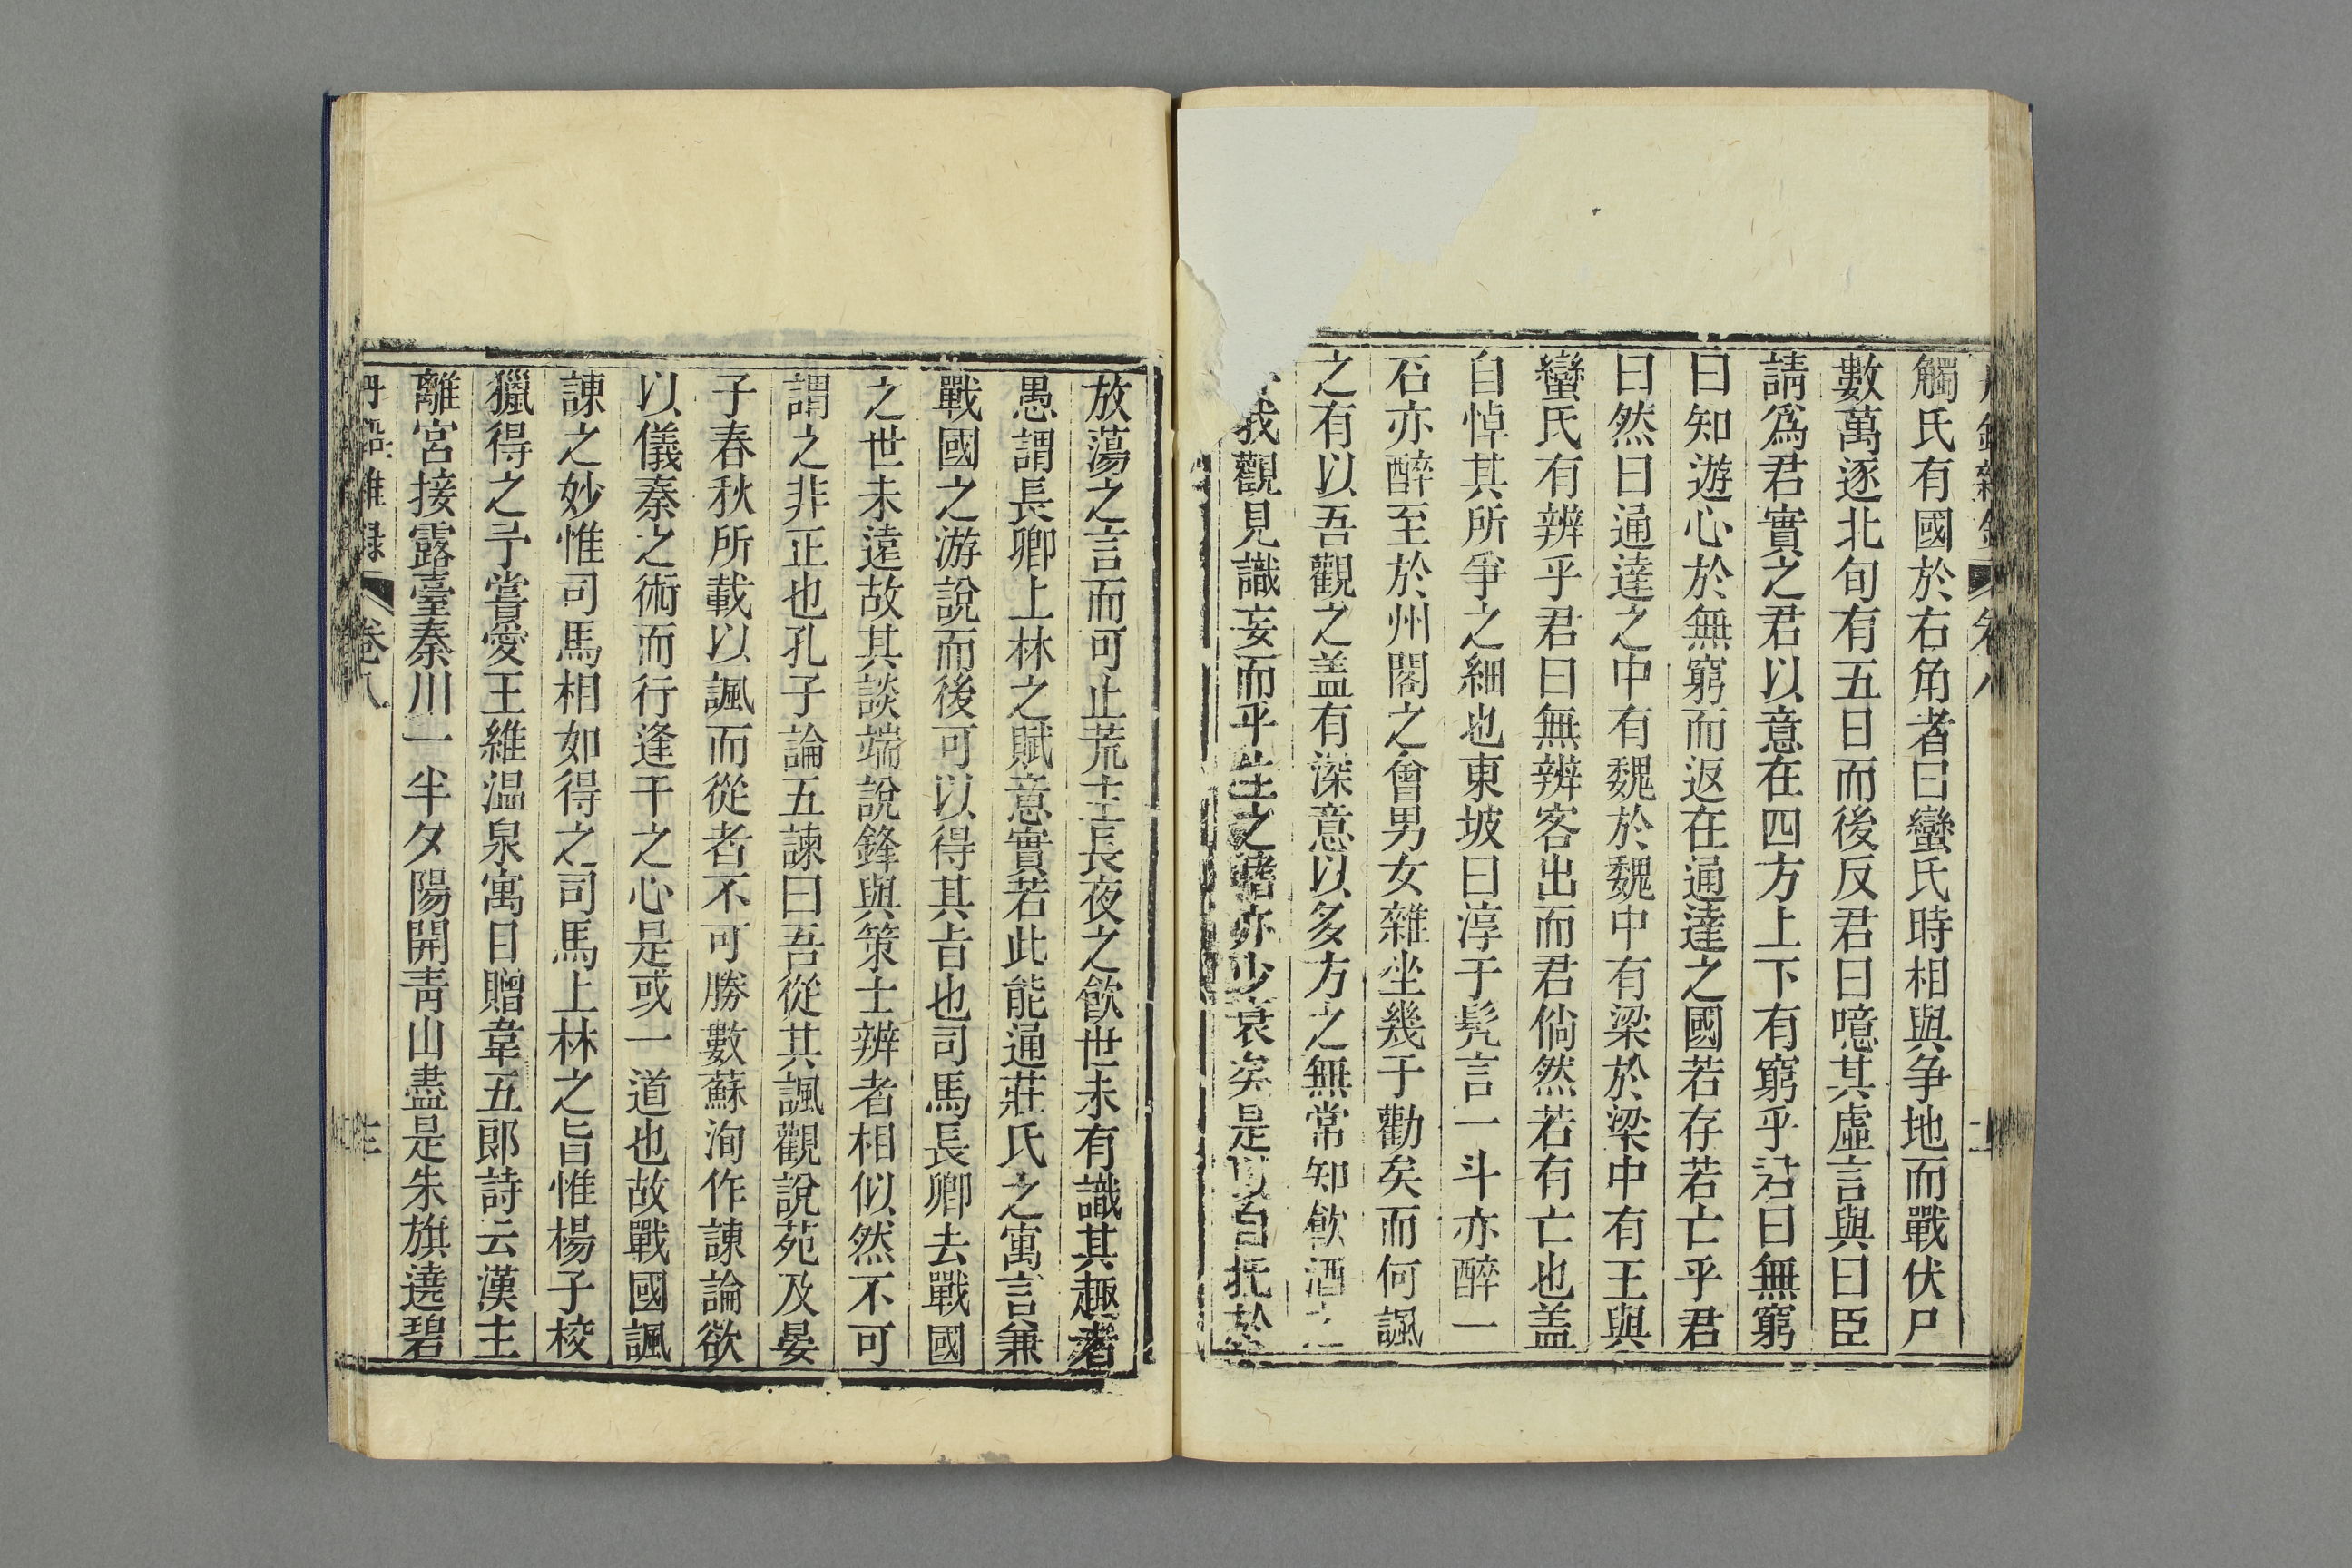 觸氏有國於右角者曰蠻氏時相與爭地而戰伏尸
數萬逐北旬有五日而後反君曰噫其虛言與曰臣
請爲君實之君以意在四方上下有窮乎君曰無窮
曰知遊心於無窮而返在通達之國若存若亡乎君
曰然曰通達之中有魏於魏中有梁於梁中有王與
蠻氏有辨乎君曰無辨客出而君倘然若有亡也盖
自悼其所爭之細也東坡曰淳于髠言一斗亦醉一
石亦醉至於州閭之會男女雜坐幾于勸矣而何諷
之有以吾觀之盖有深意以多方之無常知飲酒之
我觀見識妄而平生之嗜亦少衰矣是以自托於
放蕩之言而可止荒主長夜之飲世未有識其趣者
愚謂長卿上林之賦意實若此能通莊氏之寓言兼
戰國之游說而後可以得其旨也司馬長卿去戰國
之世未遠故其談端說鋒與策士辨者相似然不可
謂之非正也孔子論五諫曰吾從其諷觀說苑及晏
子春秋所載以諷而從者不可勝數蘇洵作諫論欲
以儀秦之術而行逢干之心是或一道也故戰國諷
諫之妙惟司馬相如得之司馬上林之旨惟楊子校
獵得之予嘗愛王維温泉寓目贈韋五郎詩云漢主
離宮接露臺秦川一半夕陽開青山盡是朱旗遶碧
卷八